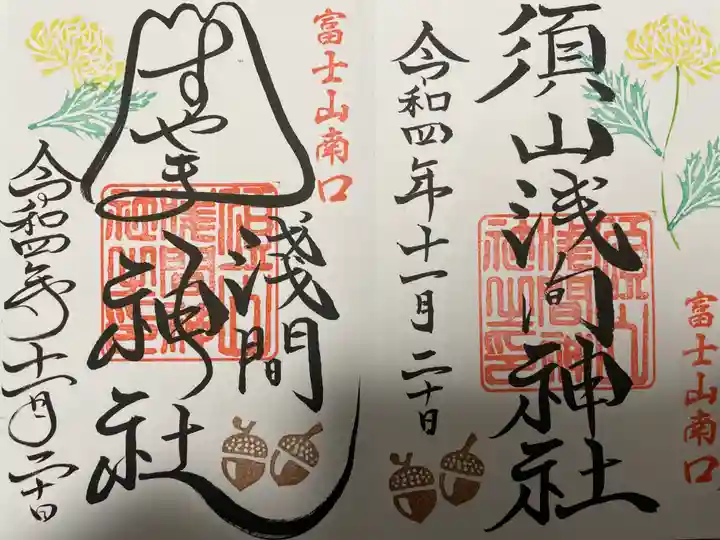 富士山南口
須山浅間神社
令和四年十一月二十日
富士山南口
すやま
浅間
神社
令和四年十一月二十日